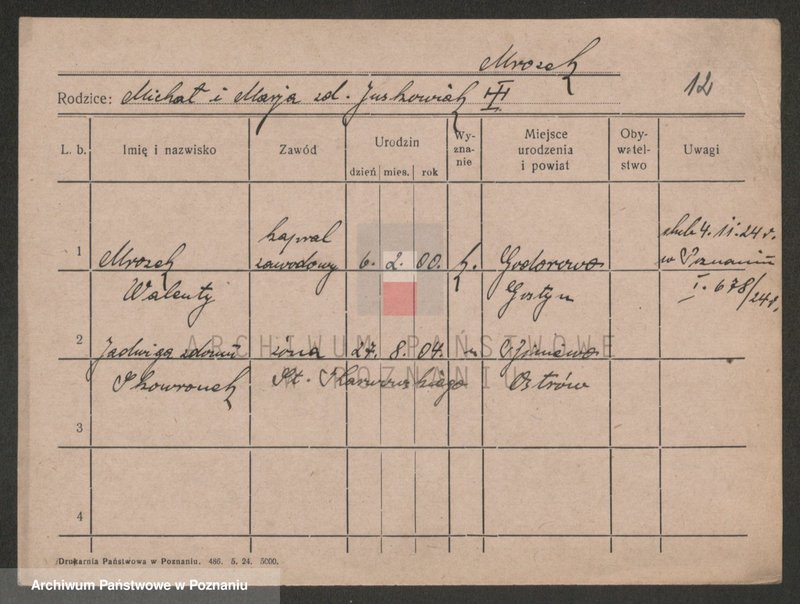 Mrozek
Rodzice: Michał i Marja zd. Juskowiak III
12
L. b. Imię i nazwisko Zawód Urodzin dzień mies. rok Wy- zna- nie Miejsce urodzenia i powiat Oby- watel- stwo Uwagi
kapral ślub 4.11.24 r.
1 Mrozek zawodowy 6. 2. 00. k. w Poznaniu
Walenty Gostyn I. 678/24 r.
2 Jadwiga zdomu żona 27. 8. 04. "
Skowronek Ostrów
3
4
ARCHIWUM PAŃSTWOWE
W POZNANIU
Drukarnia Państwowa w Poznaniu. 486. 5. 24. 5000.
Archiwum Państwowe w Poznaniu